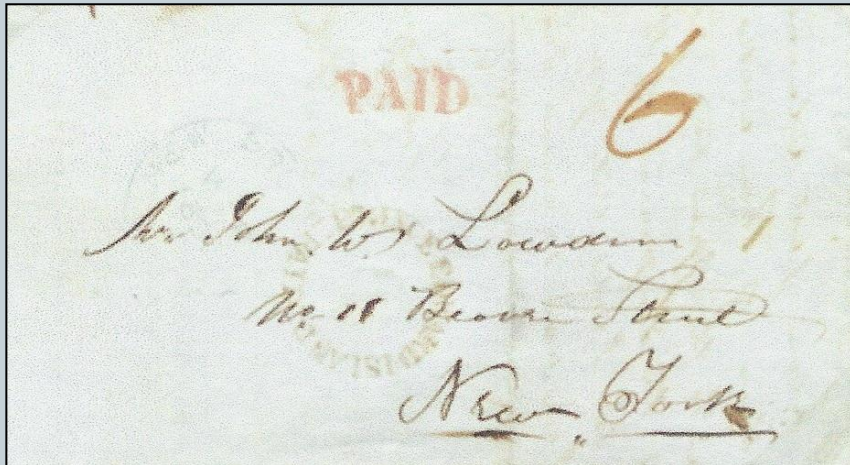 PAID
6
Mr John W Lowden
No 11 Beaver Street
New York